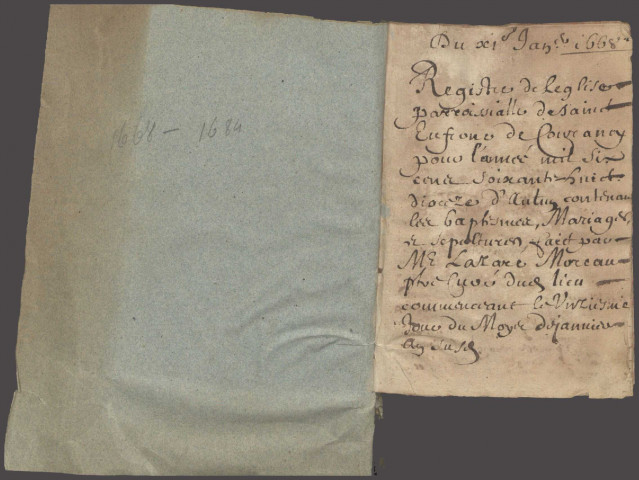 1668 – 1684
Du xie Janer 1668
Registre de leglise
parroissialle de Sainct
Eufrone de Courancy
pour l'année mil six
cens soixante huict
dioceze d'Autun contenan
les baptesmes, Mariages,
et sepultures, faict par
Me Lazare Moreau
pbre Curé dud lieu
commenceant le unziesme
Jour du Moys de janvier
an susd